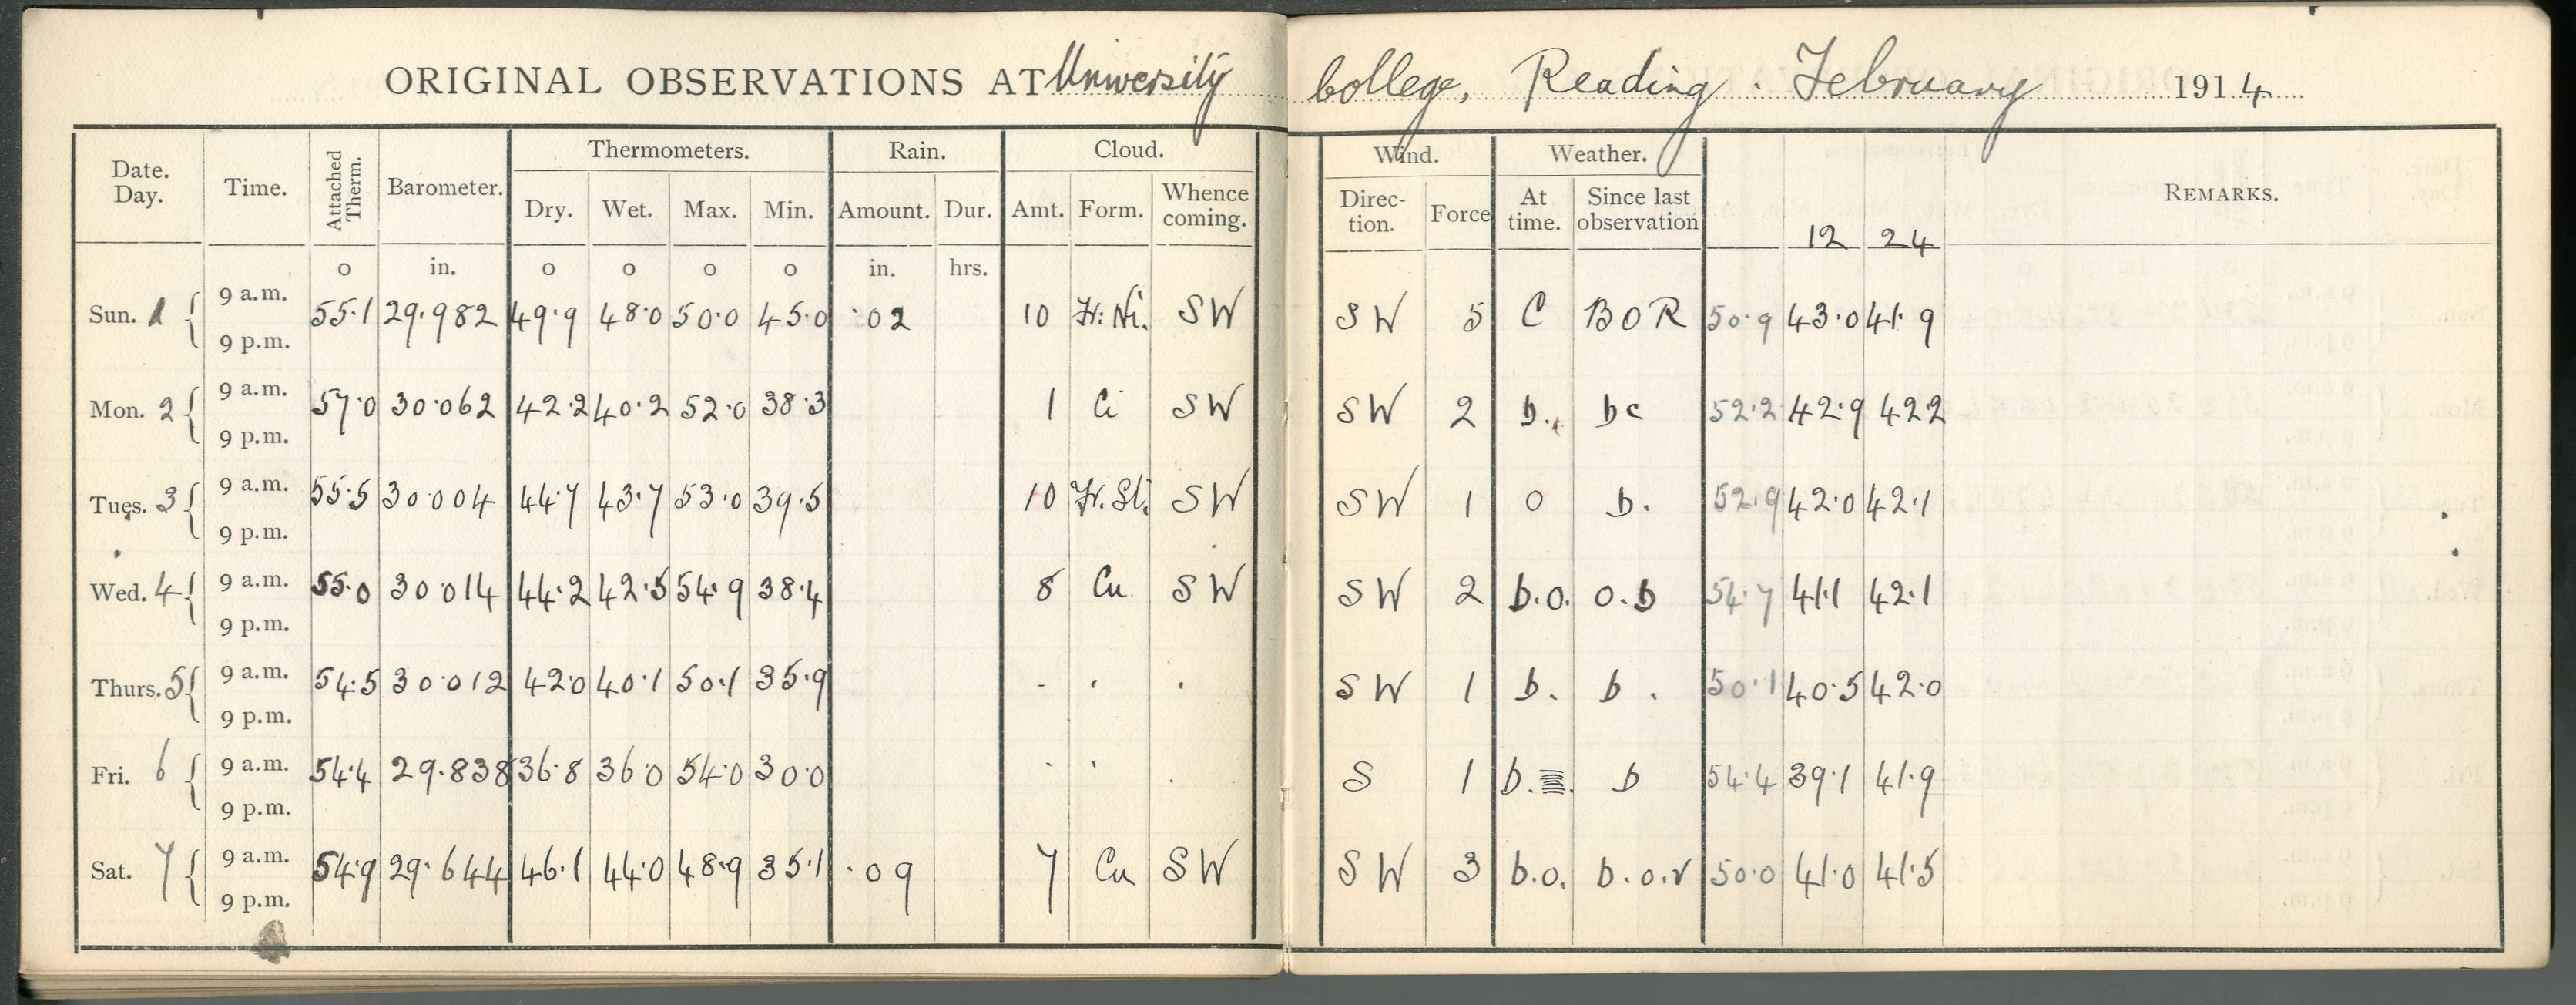 ORIGINAL OBSERVATIONS AT University College, Reading. February 1914
Date. Day. Time. Attached Therm. Barometer. Thermometers. Rain. Cloud. Wind. Weather. REMARKS.
Dry. Wet. Max. Min. Amount. Dur. Amt. Form. Whence coming. Direc- tion. Force At time. Since last observation 12 24
o in. o o o o in. hrs.
Sun. 1 9 a.m. 55.1 29.982 49.9 48.0 50.0 45.0 .02 10 Fr. Ni. SW SW 5 C BOR 50.9 43.0 41.9
9 p.m.
Mon. 2 9 a.m. 57.0 30.062 42.2 40.2 52.0 38.3 1 Ci SW SW 2 b. bc 52.2 42.9 42.2
9 p.m.
Tues. 3 9 a.m. 55.5 30.004 44.7 43.7 53.0 39.5 10 Fr. St. SW SW 1 o b. 52.9 42.0 42.1
9 p.m.
Wed. 4 9 a.m. 55.0 30.014 44.2 42.5 54.9 38.4 8 Cu SW SW 2 b.o. o.b 54.7 41.1 42.1
9 p.m.
Thurs. 5 9 a.m. 54.5 30.012 42.0 40.1 50.1 35.9 - . . SW 1 b. b. 50.1 40.5 42.0
9 p.m.
Fri. 6 9 a.m. 54.4 29.838 36.8 36.0 54.0 30.0 . . . S 1 b.≡. b 54.4 39.1 41.9
9 p.m.
Sat. 7 9 a.m. 54.9 29.644 46.1 44.0 48.9 35.1 .09 7 Cu SW SW 3 b.o. b.o.r 50.0 41.0 41.5
9 p.m.